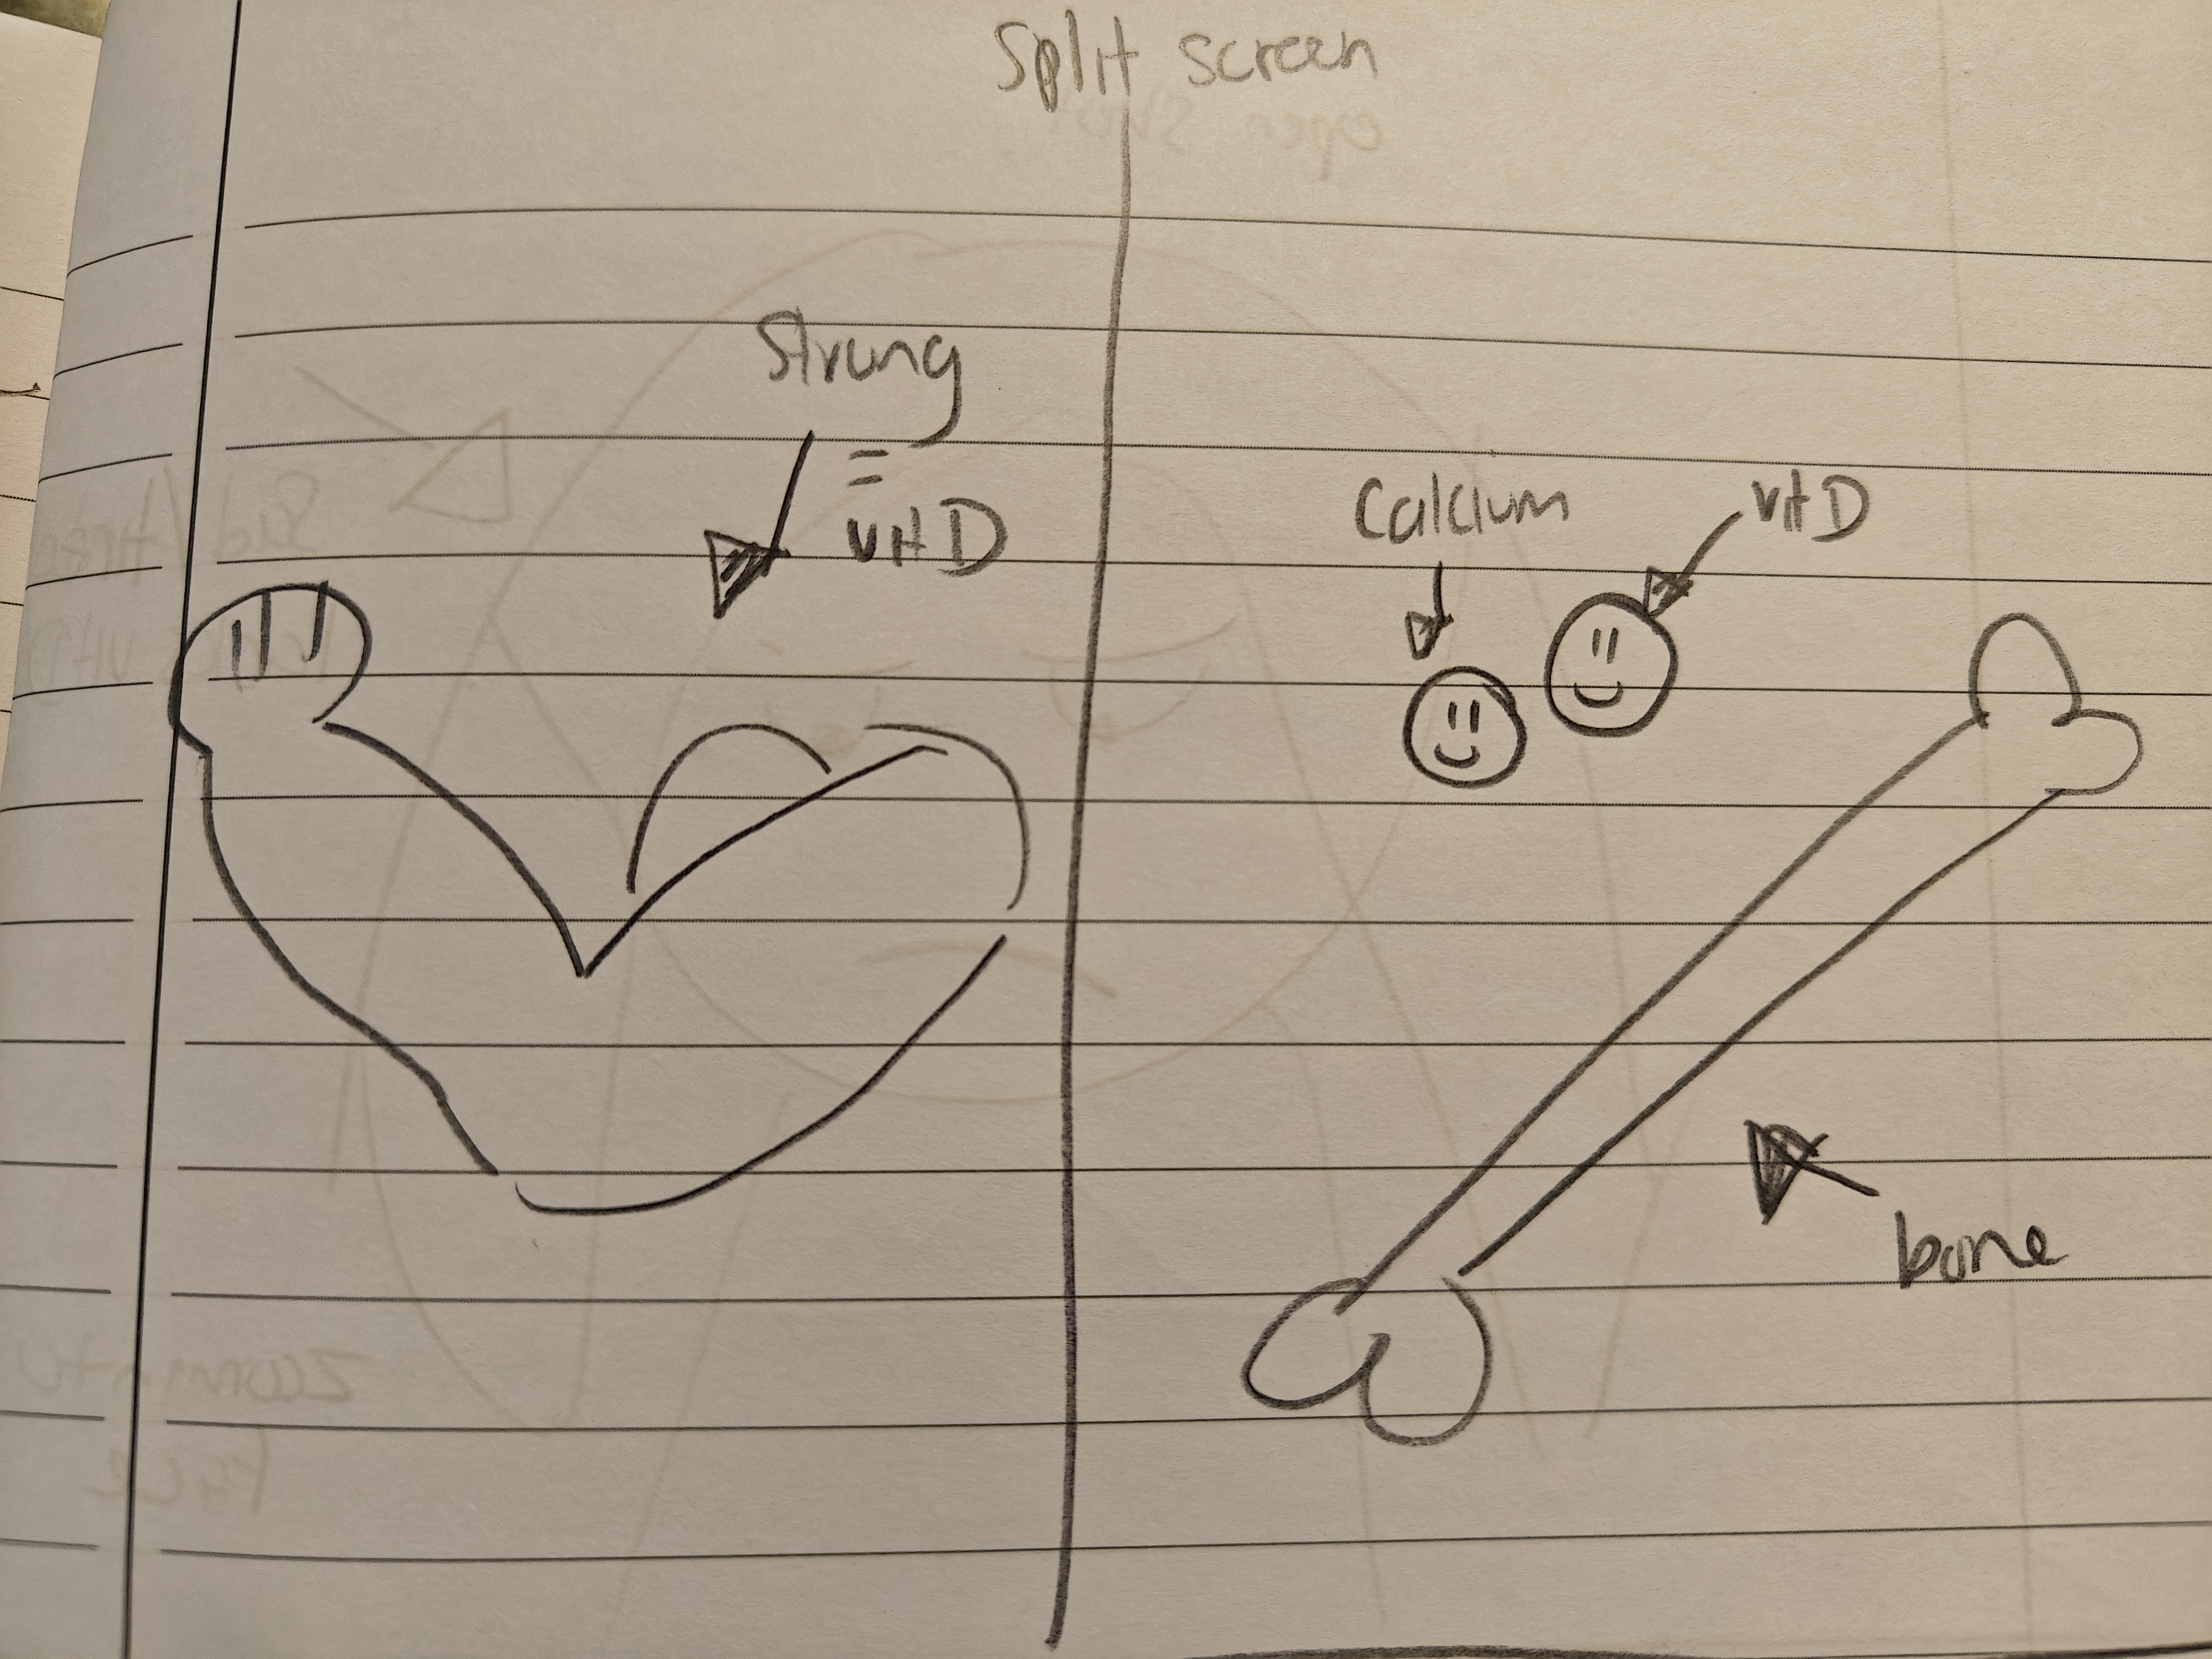 Split screen
Strong
=
vit D
Calcium
vit D
bone